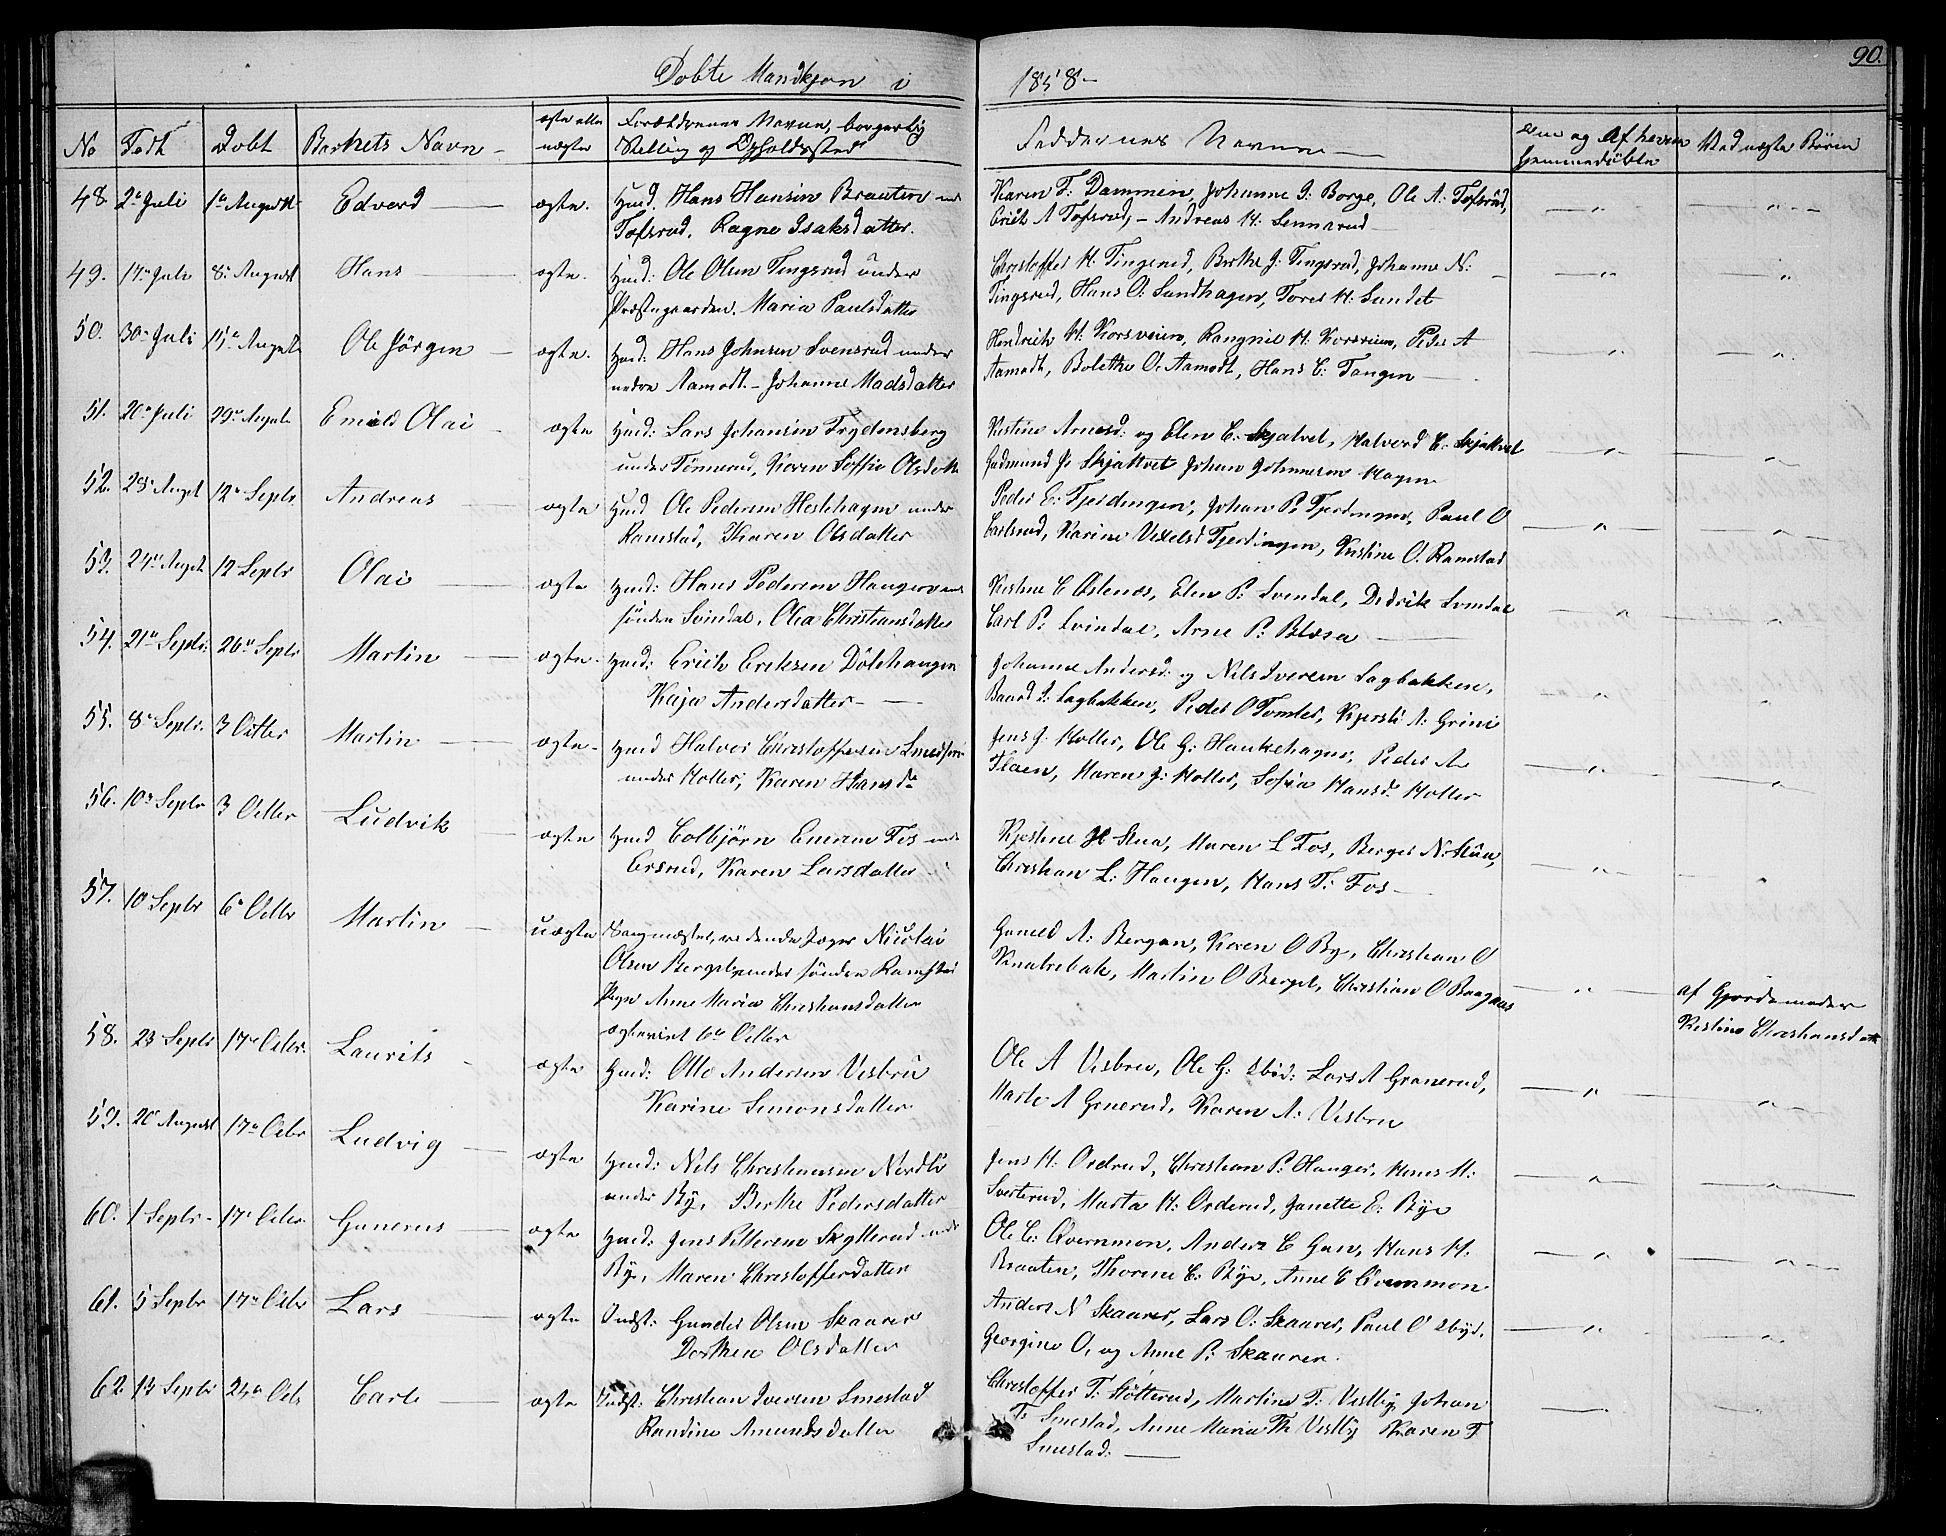 Döbte Mandkjøn i 1858 -
90.
No Födt Döbt Barnets Navn - ægte eller uægte Forældrenes Navne, borgerlig Stilling og Opholdssted Faddernes Navne hjemmedöbte Ved uægte Börn
48. 2n Juli 1n August Edverd ægte. Hmd. Hans Hansen Brauten und
Tofsrud. Ragne Isaksdatter.
Karen T: Dammen, Johanne J: Borge, Ole A: Tofsrud,
Erich A Tofsrud, - Andreas H: Sennerud
49. 17n Juli 8n August Hans ægte. Hmd: Ole Olsen Tingsrud under
Præstegaarden. Maria Paulsdatter
Christoffer H. Tingsrud, Berthe J: Tingsrud, Johanne N:
Tingsrud, Hans O: Sundhagen, Tores H: Sundet
50. 30n Juli 15n August Ole Jörgen ægte. Hmd: Hans Johnsen Svensrud under
nedre Aamodt - Johanne Madsdatter
Hendrich H: Korsveien, Rangnil H. Korsveien, Peder A
Aamodt, Bolethe O. Aamodt, Hans E: Tangen
51. 20n Juli 29n August Emild Olai ægte Hmd: Lars Johansen Frydensberg
under Tömmerud, Karen Soffie Olsdatt
Kistine Arnesd: og Elen C: Skjatvet, Halverd C. Skjattvet
Gudmund P: Skjattvet Johan Johannesen Hagen
52. 28n August 12n Septr. Andreas ægte Hmd Ole Pedersen Hestehagen under
Ramstad, Karen Olsdatter
Peder E: Tjerdingen, Johan P: Tjerdingen, Paul O
Carlsrud, Karine Vexelsd Tjerdingen, Kistine O: Ramstad
53. 24n August 12 Septr Olai ægte Hmd: Hans Pedersen Haugers und
söndre Svindal, Olia Christiansdatter
Kistine C Østenes, Elen P: Svendal, Dedrik Svindal
Carl P: Svindal, Arne P: Blæsa
54. 21n Septr: 26n Septr Martin ægte Hmd: Erich Eriksen Dölehaugen
Kaja Andersdatter
Johanne Andersd: og Nils Iversen Sagbakken,
Baard I: Sagbakken, Peder O Tomter, Kjersti A: Grini
55. 8n Septr. 3 Octbr Martin ægte Hmd Halvor Christoffersen Smedsrud
under Holter, Karen Hansdr
Jens J. Holter, Ole G: Haukehagen, Peder A
Flaen, Maren J: Holter, Sofia Hansd. Holter
56. 10n Septr 3 Octbr Ludvik ægte Hmd Colbjörn Enersen Fos und
Ersrud, Karen Larsdatter
Kjestine H Stua, Maren L Fos, Berger N: Stua,
Christian L: Haugen, Hans T: Fos
57. 10 Septr 6n Octbr Martin uægte Oluen Bergsbyunder söndre Ramstad
Pige Anne Maria Christiansdatter
ægteviet 6n Octbr
Guneld A: Bergan, Karen O By, Christian O
Knatrebak, Martin O Berget, Christian O Baagaas
af Gjordemoder
Kistine Christiansdatt
58. 23 Septr 17n Octbr. Laurits ægte Hmd: Otto Andersen Visbru
Karine Simonsdatter
Ole A Visbru, Ole G: Sböd: Lars A Granerud,
Marte A Grnerud, Karen A: Visbru
59. 20 August 17n Octbr Ludvig ægte Hmd: Nils Christiansen Nordli
under By, Berthe Pedersdatter
Jens H: Ordrud, Christian P: Hauger, Hans H:
Sverterud, Marta H: Orderud, Janette E: Bye
60. 1 Septr - 17n Octbr. Gunerus ægte Hmd: Jens Pettersen Skytterud und
By, Maren Christoffersdatter
Ole C: Qvernmon, Anders C Gun, Hans H.
Braaten, Thorine C: Bye, Anne C Qvernmon
61. 5 Septr 17n Octbr Lars ægte Indst: Gunder Olsen Skaarer
Dorthea Olsdatter
Anders N Skaarer, Lars O: Skaarer, Paul O Sbyd,
Georgine O, og Anne P: Skaurer.
62. 13 Septr 24n Octr Carl ægte Indst: Christian Iversen Smestad
Randine Amundsdatter
Christoffer T: Slötterud, Martine T: Vestby, Johan
T: Smestad, Anne Maria Th Vestby Karen T
Smestad: